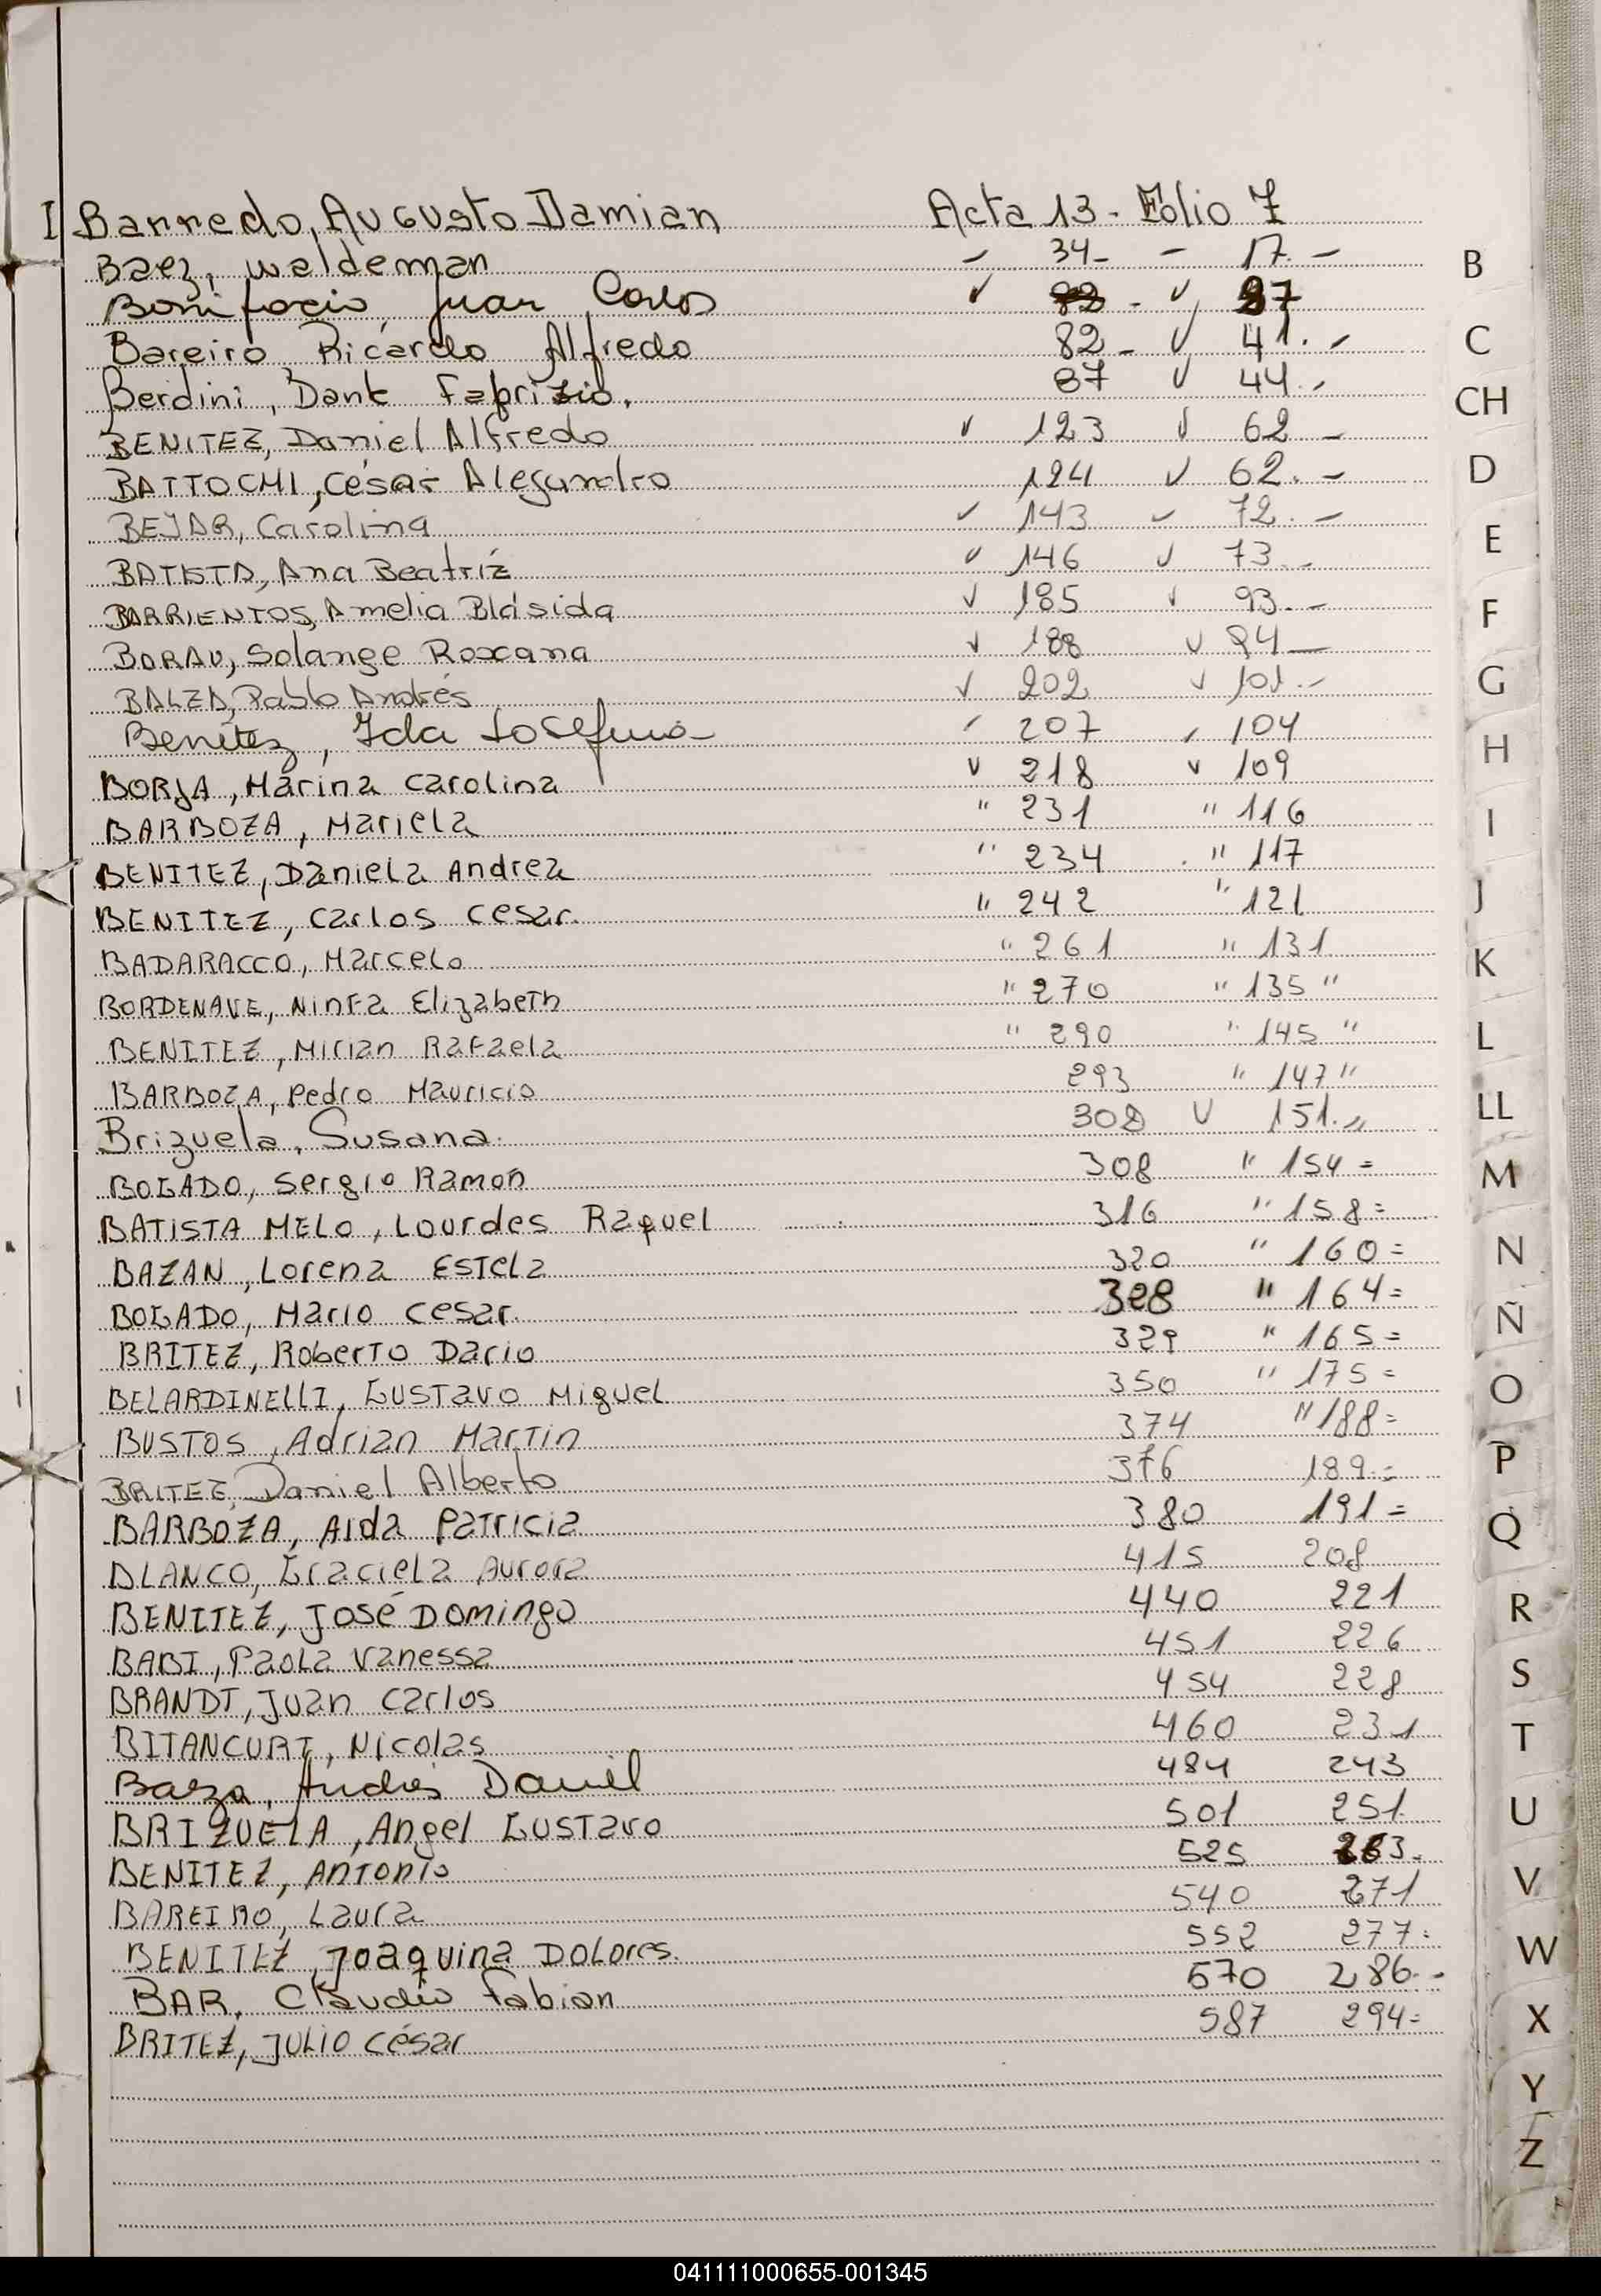 I Barredo, Augusto Damian Acta 13 - Folio 7
Baez, Waldemar - 34 - - 17. -
Bonifacio, Juan Carlos " - " 37
Bareiro Ricardo Alfredo 82 - " 41. -
Berdini, Dante Fabrizio. 87 " 44. -
BENITEZ, Daniel Alfredo " 123 " 62 -
BATTOCHI, César Alejandro 124 " 62. -
BEJAR, Carolina " 143 " 72. -
BATISTA, Ana Beatríz " 146 " 73. -
BARRIENTOS, Amelia Blásida " 185 " 93. -
BORAU, Solange Roxana " 188 " 94 -
BALZA, Pablo Andrés " 202 " 101. -
Benitez, Ida Josefina " 207 " 104
BORJA, Marina Carolina " 218 " 109
BARBOZA, Mariela " 231 " 116
BENITEZ, Daniela Andrea " 234 " 117
BENITEZ, Carlos Cesar. " 242 " 121
BADARACCO, Marcelo " 261 " 131
BORDENAVE, Ninfa Elizabeth " 270 " 135 "
BENITEZ, Mirian Rafaela " 290 " 145 "
BARBOZA, Pedro Mauricio 293 " 147 "
Brizuela, Susana. 302 " 151. "
BOGADO, Sergio Ramón 308 " 154 =
BATISTA MELO, Lourdes Raquel 316 " 158 =
BAZAN, Lorena Estela 320 " 160 =
BOGADO, Mario Cesar. 328 " 164 =
BRITEZ, Roberto Dario 329 " 165 =
BELARDINELLI, Gustavo Miguel 350 " 175 =
BUSTOS, Adrian Martin 374 " 188 =
BRITEZ, Daniel Alberto 376 189. =
BARBOZA, Aida Patricia 380 191 =
BLANCO, Graciela Aurora 415 208
BENITEZ, José Domingo 440 221
BABI, Paola Vanessa 451 226
BRANDT, Juan Carlos 454 228
BITANCURT, Nicolas 460 231
Baeza, Andrés Daniel 484 243
BRIZUELA, Angel Gustavo 501 251.
BENITEZ, Antonio 525 263.
BAREIRO, Laura 540 271
BENITEZ, Joaquina Dolores. 552 277 =
BAR, Claudio Fabian 570 286. -
BRITEZ, Julio César 587 294 =
B
C
CH
D
E
F
G
H
I
J
K
L
LL
M
N
Ñ
O
P
Q
R
S
T
U
V
W
X
Y
Z
041111000655-001345